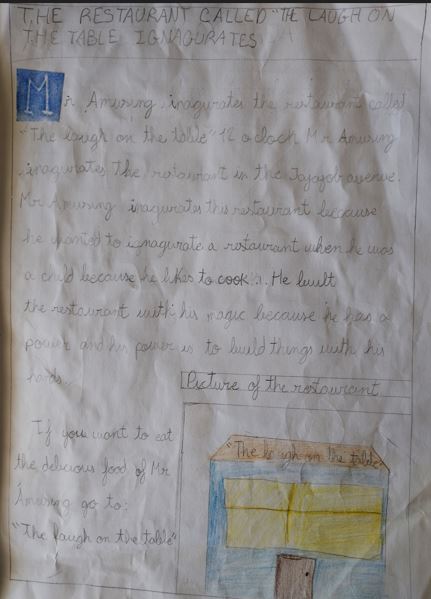 THE RESTAURANT CALLED "THE LAUGH ON
THE TABLE IGNAGURATES.
Mr Amusing inagurates the restaurant called
"The laugh on the table" 12 o clock Mr Amusing
inagurates the restaurant in the avenue.
Mr Amusing inagurates this restaurant because
he wanted to ignagurate a restaurant when he was
a child because he likes to cook. He built
the restaurant with his magic because he has a
power and his power is to build things with his
hands.
Picture of the restaurant
If you want to eat
the delicious food of Mr
Amusing go to:
"The laugh on the table"
"The laugh on the table"